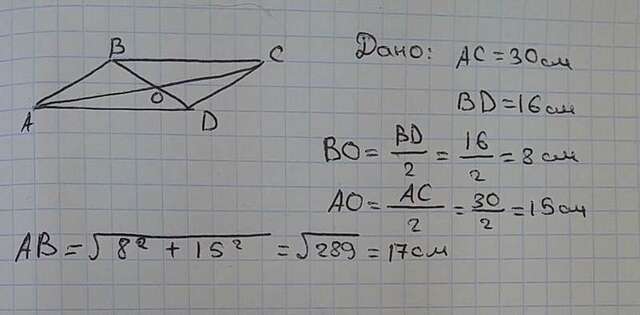 B
C
O
A
D
Дано: AC = 30 см
BD = 16 см
BO = BD/2 = 16/2 = 8 см
AO = AC/2 = 30/2 = 15 см
AB = √8² + 15² = √289 = 17 см